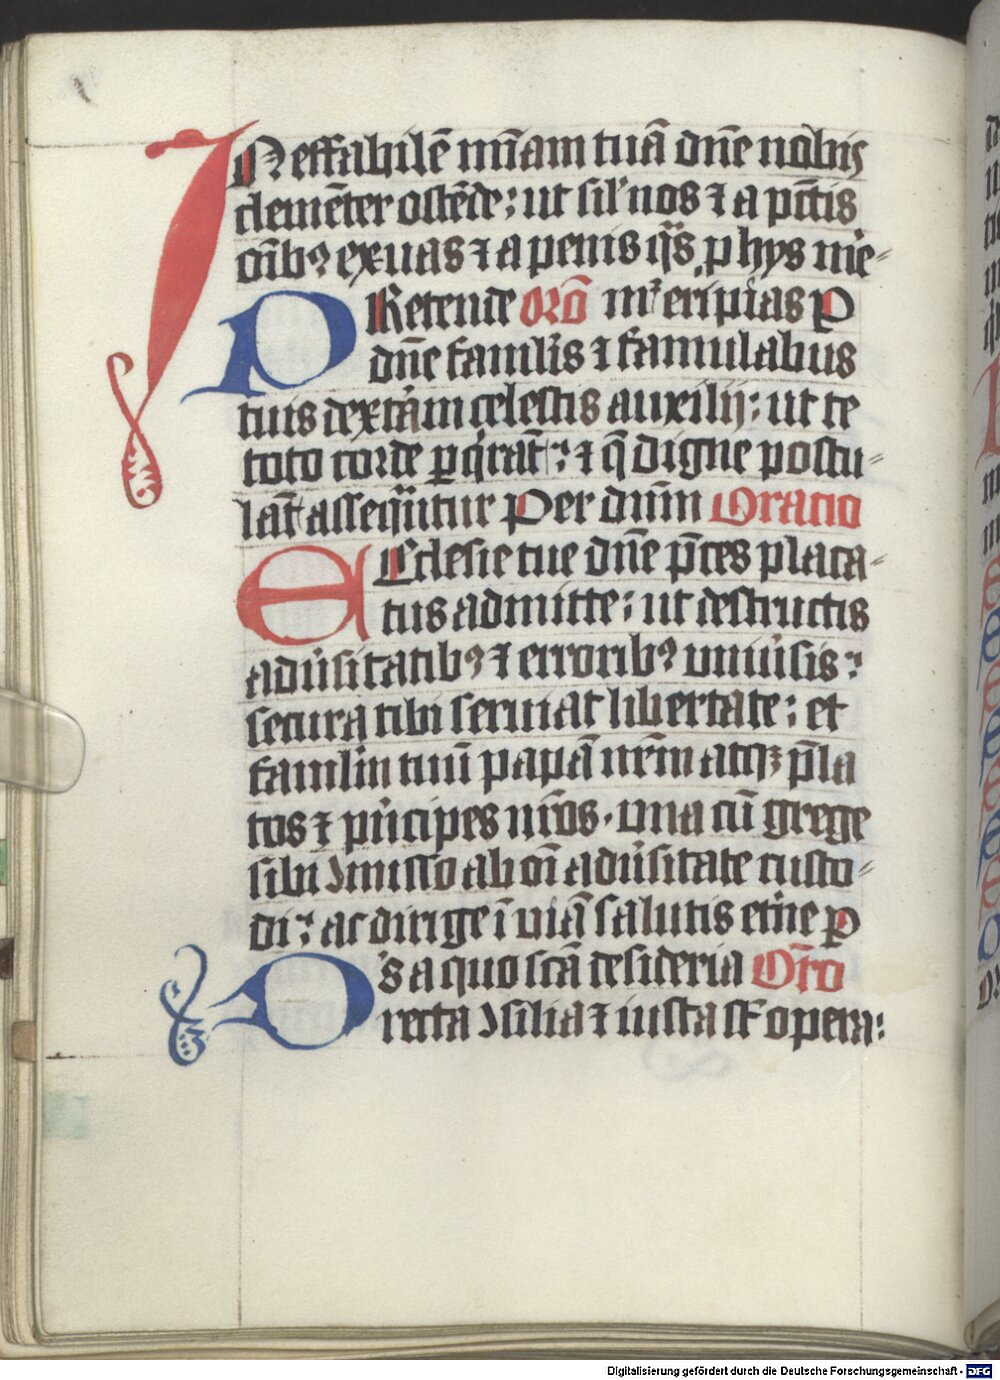 INeffabilē mīam tuā dn̄e nobis
clemēter ostēde; ut sil' nos ⁊ a pc̄tis
oīb9 exuas ⁊ a penis q̄s p hys me-
PRetende orō m' eripias P
dn̄e famulis ⁊ famulabus
tuis dexterā celestis auxilij; ut te
toto corde pq̄rāt; ⁊ q̄ digne postu-
lāt assequūtur Per dnm̄ Oratio
ECclesie tue dn̄e p̄ces placa-
tus admitte; ut destructis
adūsitatib9 ⁊ errorib9 uniūsis;
secura tibi seruiat libertate; et
famulū tuū papā nr̄m atq3 p̄la
tos ⁊ pricipes nr̄os. una cū grege
sibi ɔmisso ab oī adūsitate custo-
di; ac dirige ī uiā salutis et'ne P
Ds a quo scā desideria Or̄o
recta ɔsilia ⁊ iusta st̄ opera:
Digitalisierung gefördert durch die Deutsche Forschungsgemeinschaft - DFG